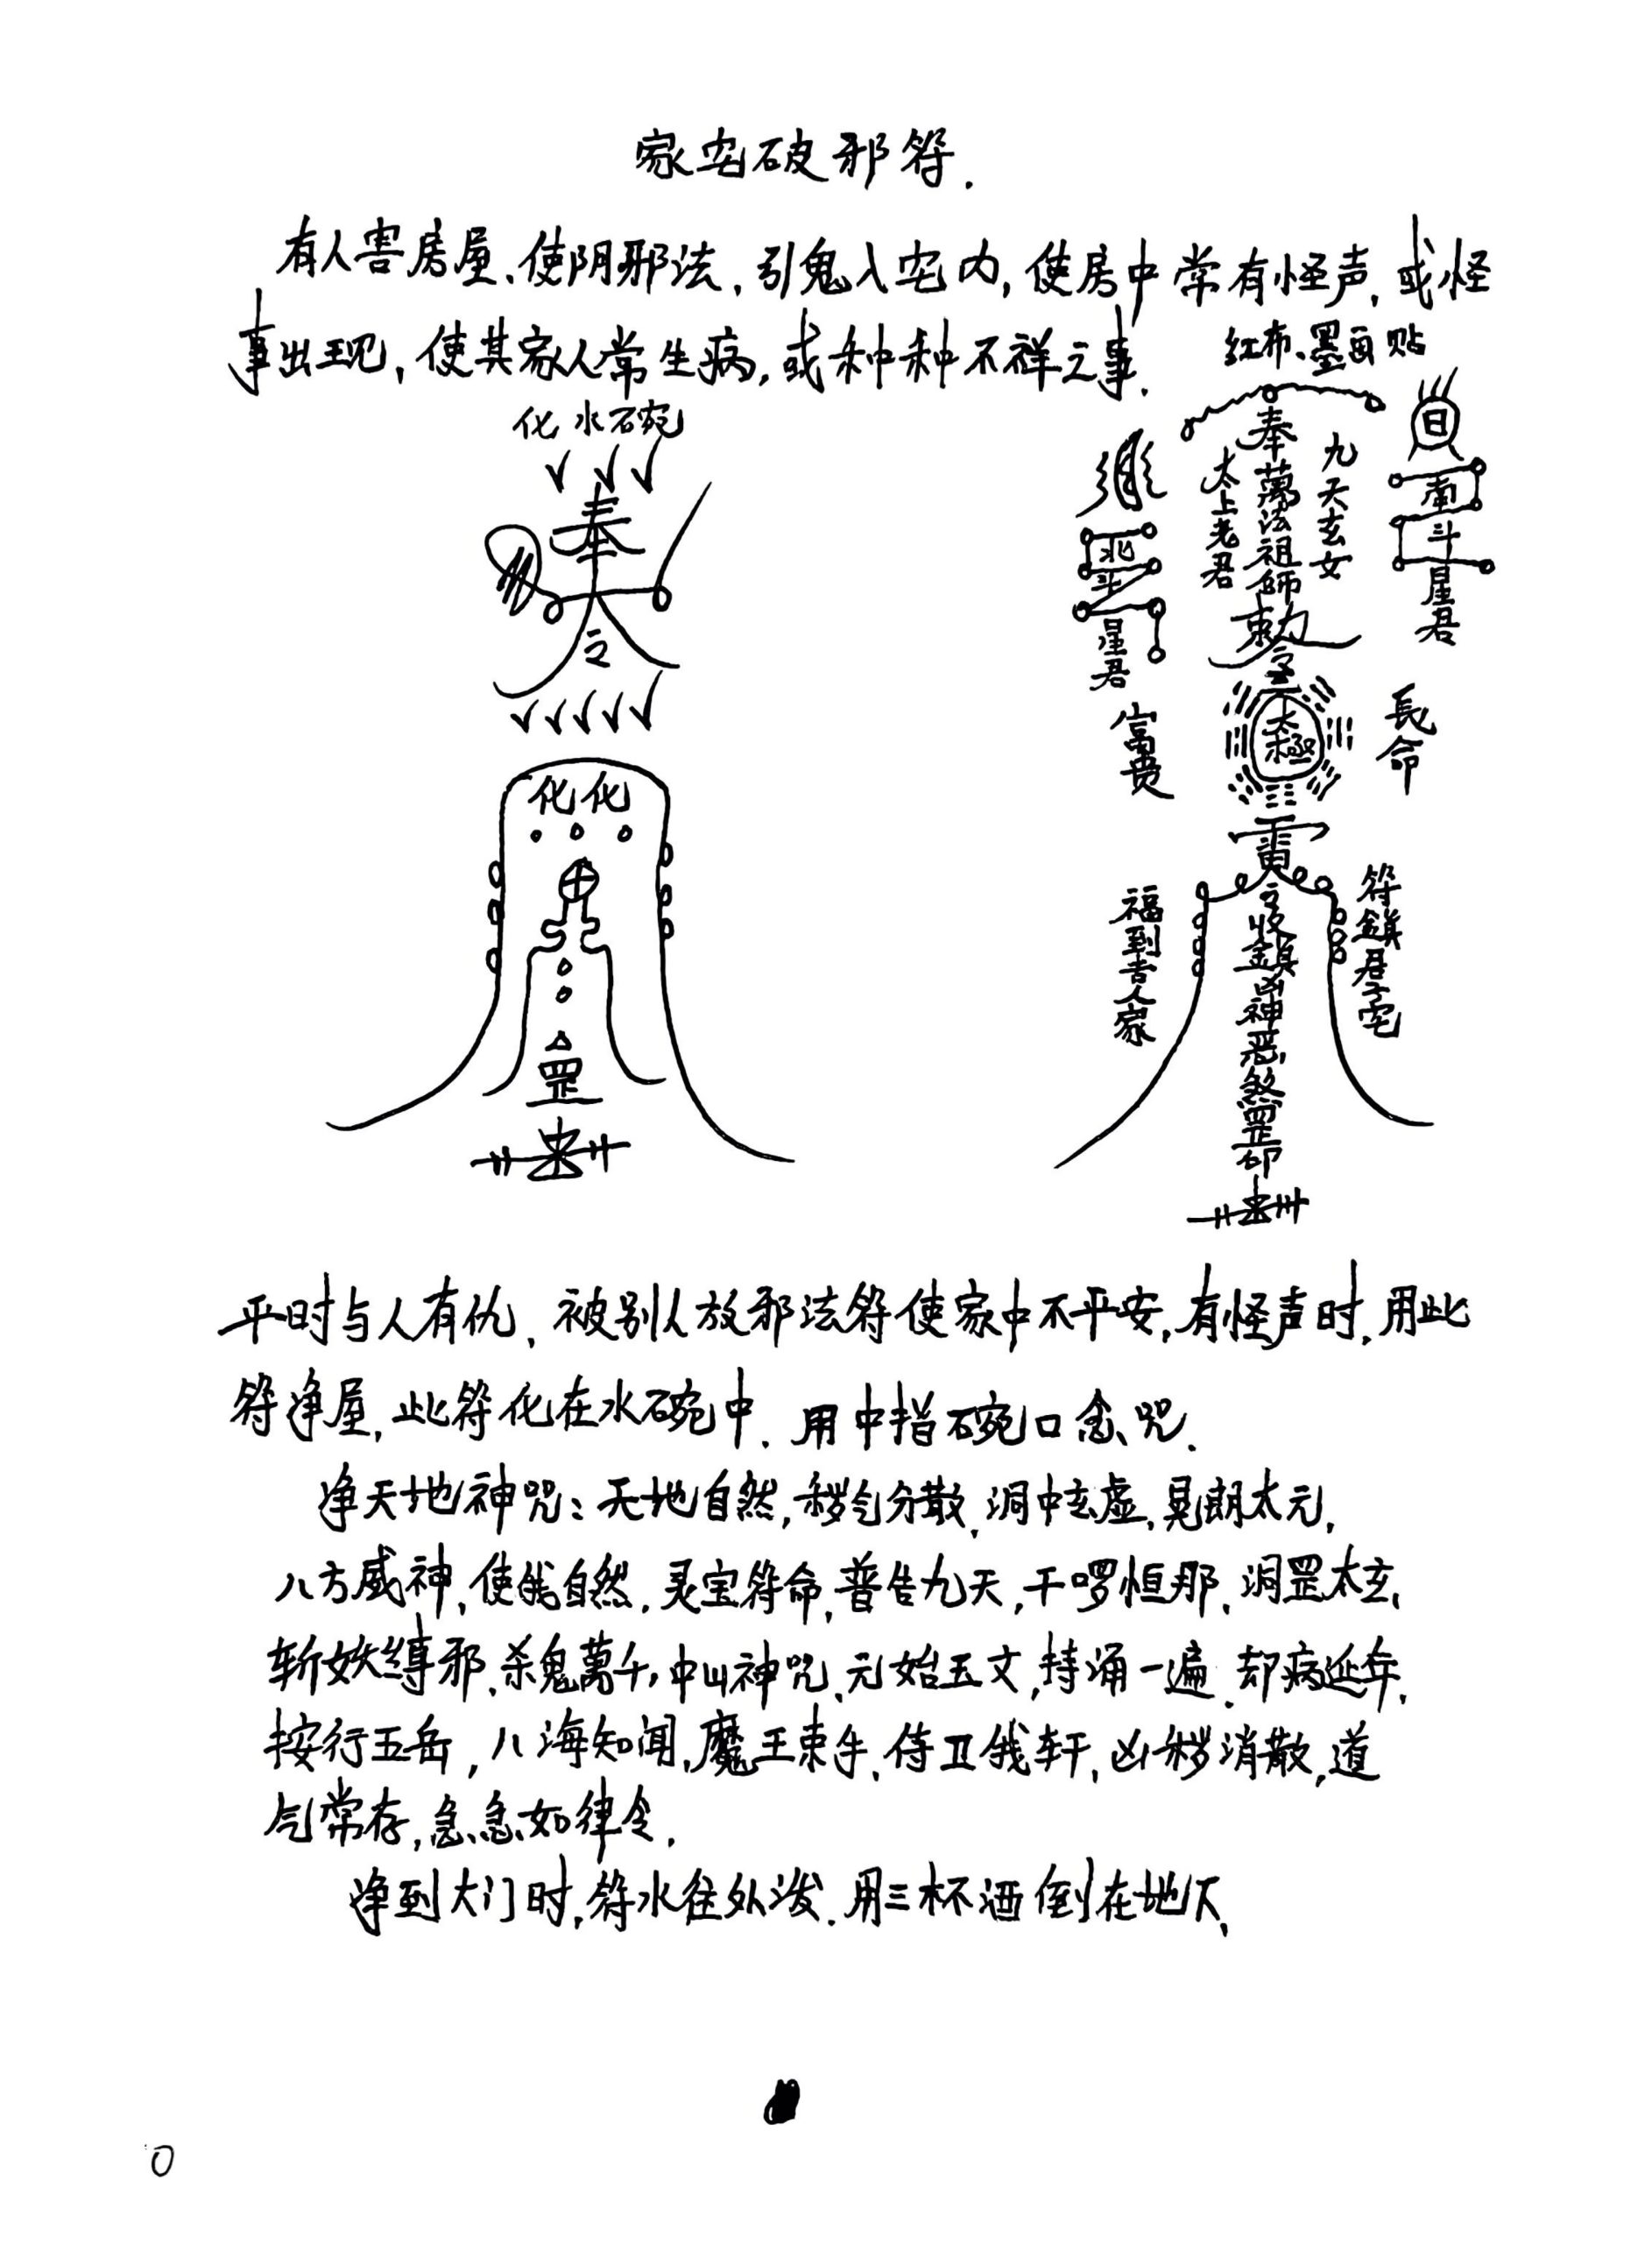 家宅破邪符.
有人害房屋、使阴邪法，引鬼入宅内，使房中常有怪声，或怪
事出现，使其家人常生病，或种种不祥之事.
化水碗
奉
令
化化
罡
红布、墨画贴
日
南斗星君
九天玄女
奉萬法祖師
太上老君
北斗星君
敕令
太極
長命
富贵
雷令收鎮凶神恶煞罡印
符鎮君子宅
福到吉人家
平时与人有仇、被别人放邪法符使家中不平安，有怪声时，用此
符净屋，此符化在水碗中.用中指碗口念咒.
净天地神咒：天地自然，秽气分散，洞中玄虚，晃朗太元，
八方威神，使我自然.灵宝符命，普告九天，干啰恒那，洞罡太玄，
斩妖缚邪、杀鬼萬千，中山神咒、元始玉文，持诵一遍.却病延年，
按行五岳，八海知闻，魔王束手、侍卫我轩，凶秽消散，道
气常存，急急如律令.
净到大门时，符水往外泼.用三杯酒倒在地下，
0